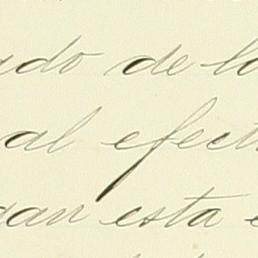 ado de lo
al efect
gan esta e